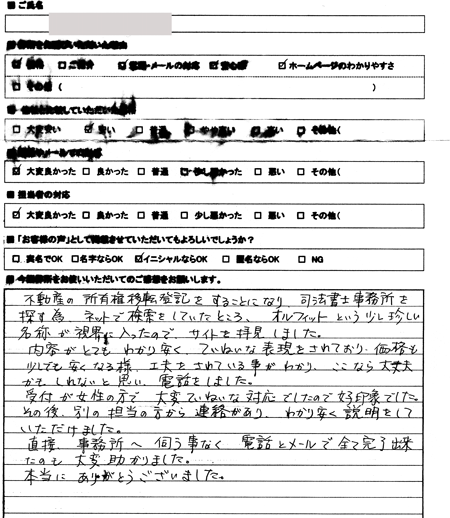 ■ ご氏名
☑ ホームページのわかりやすさ
(　　　)
□ 大変安い ☑ 安い □ 普通 □ やや高い □ 高い □ その他(
☑ 大変良かった □ 良かった □ 普通 □ 少し悪かった □ 悪い □ その他(
■ 担当者の対応
☑ 大変良かった □ 良かった □ 普通 □ 少し悪かった □ 悪い □ その他(
■「お客様の声」として掲載させていただいてもよろしいでしょうか?
□ 実名でOK □ 名字ならOK ☑ イニシャルならOK □ 匿名ならOK □ NG
不動産の所有権移転登記をすることになり、司法書士事務所を
探す為、ネットで検索をしていたところ、オルフィットという少し珍しい
名称が視界に入ったので、サイトを拝見しました。
内容がとてもわかり安く、ていねいな表現をされており、価格も
少しでも安くなる様、工夫をされている事がわかり、ここなら大丈夫
かもしれないと思い、電話をしました。
受付が女性の方で大変ていねいな対応でしたので好印象でした。
その後、別の担当の方から連絡があり、わかり安く説明をして
いただけました。
直接、事務所へ伺う事なく、電話とメールで全て完了出来
たのも大変助かりました。
本当にありがとうございました。